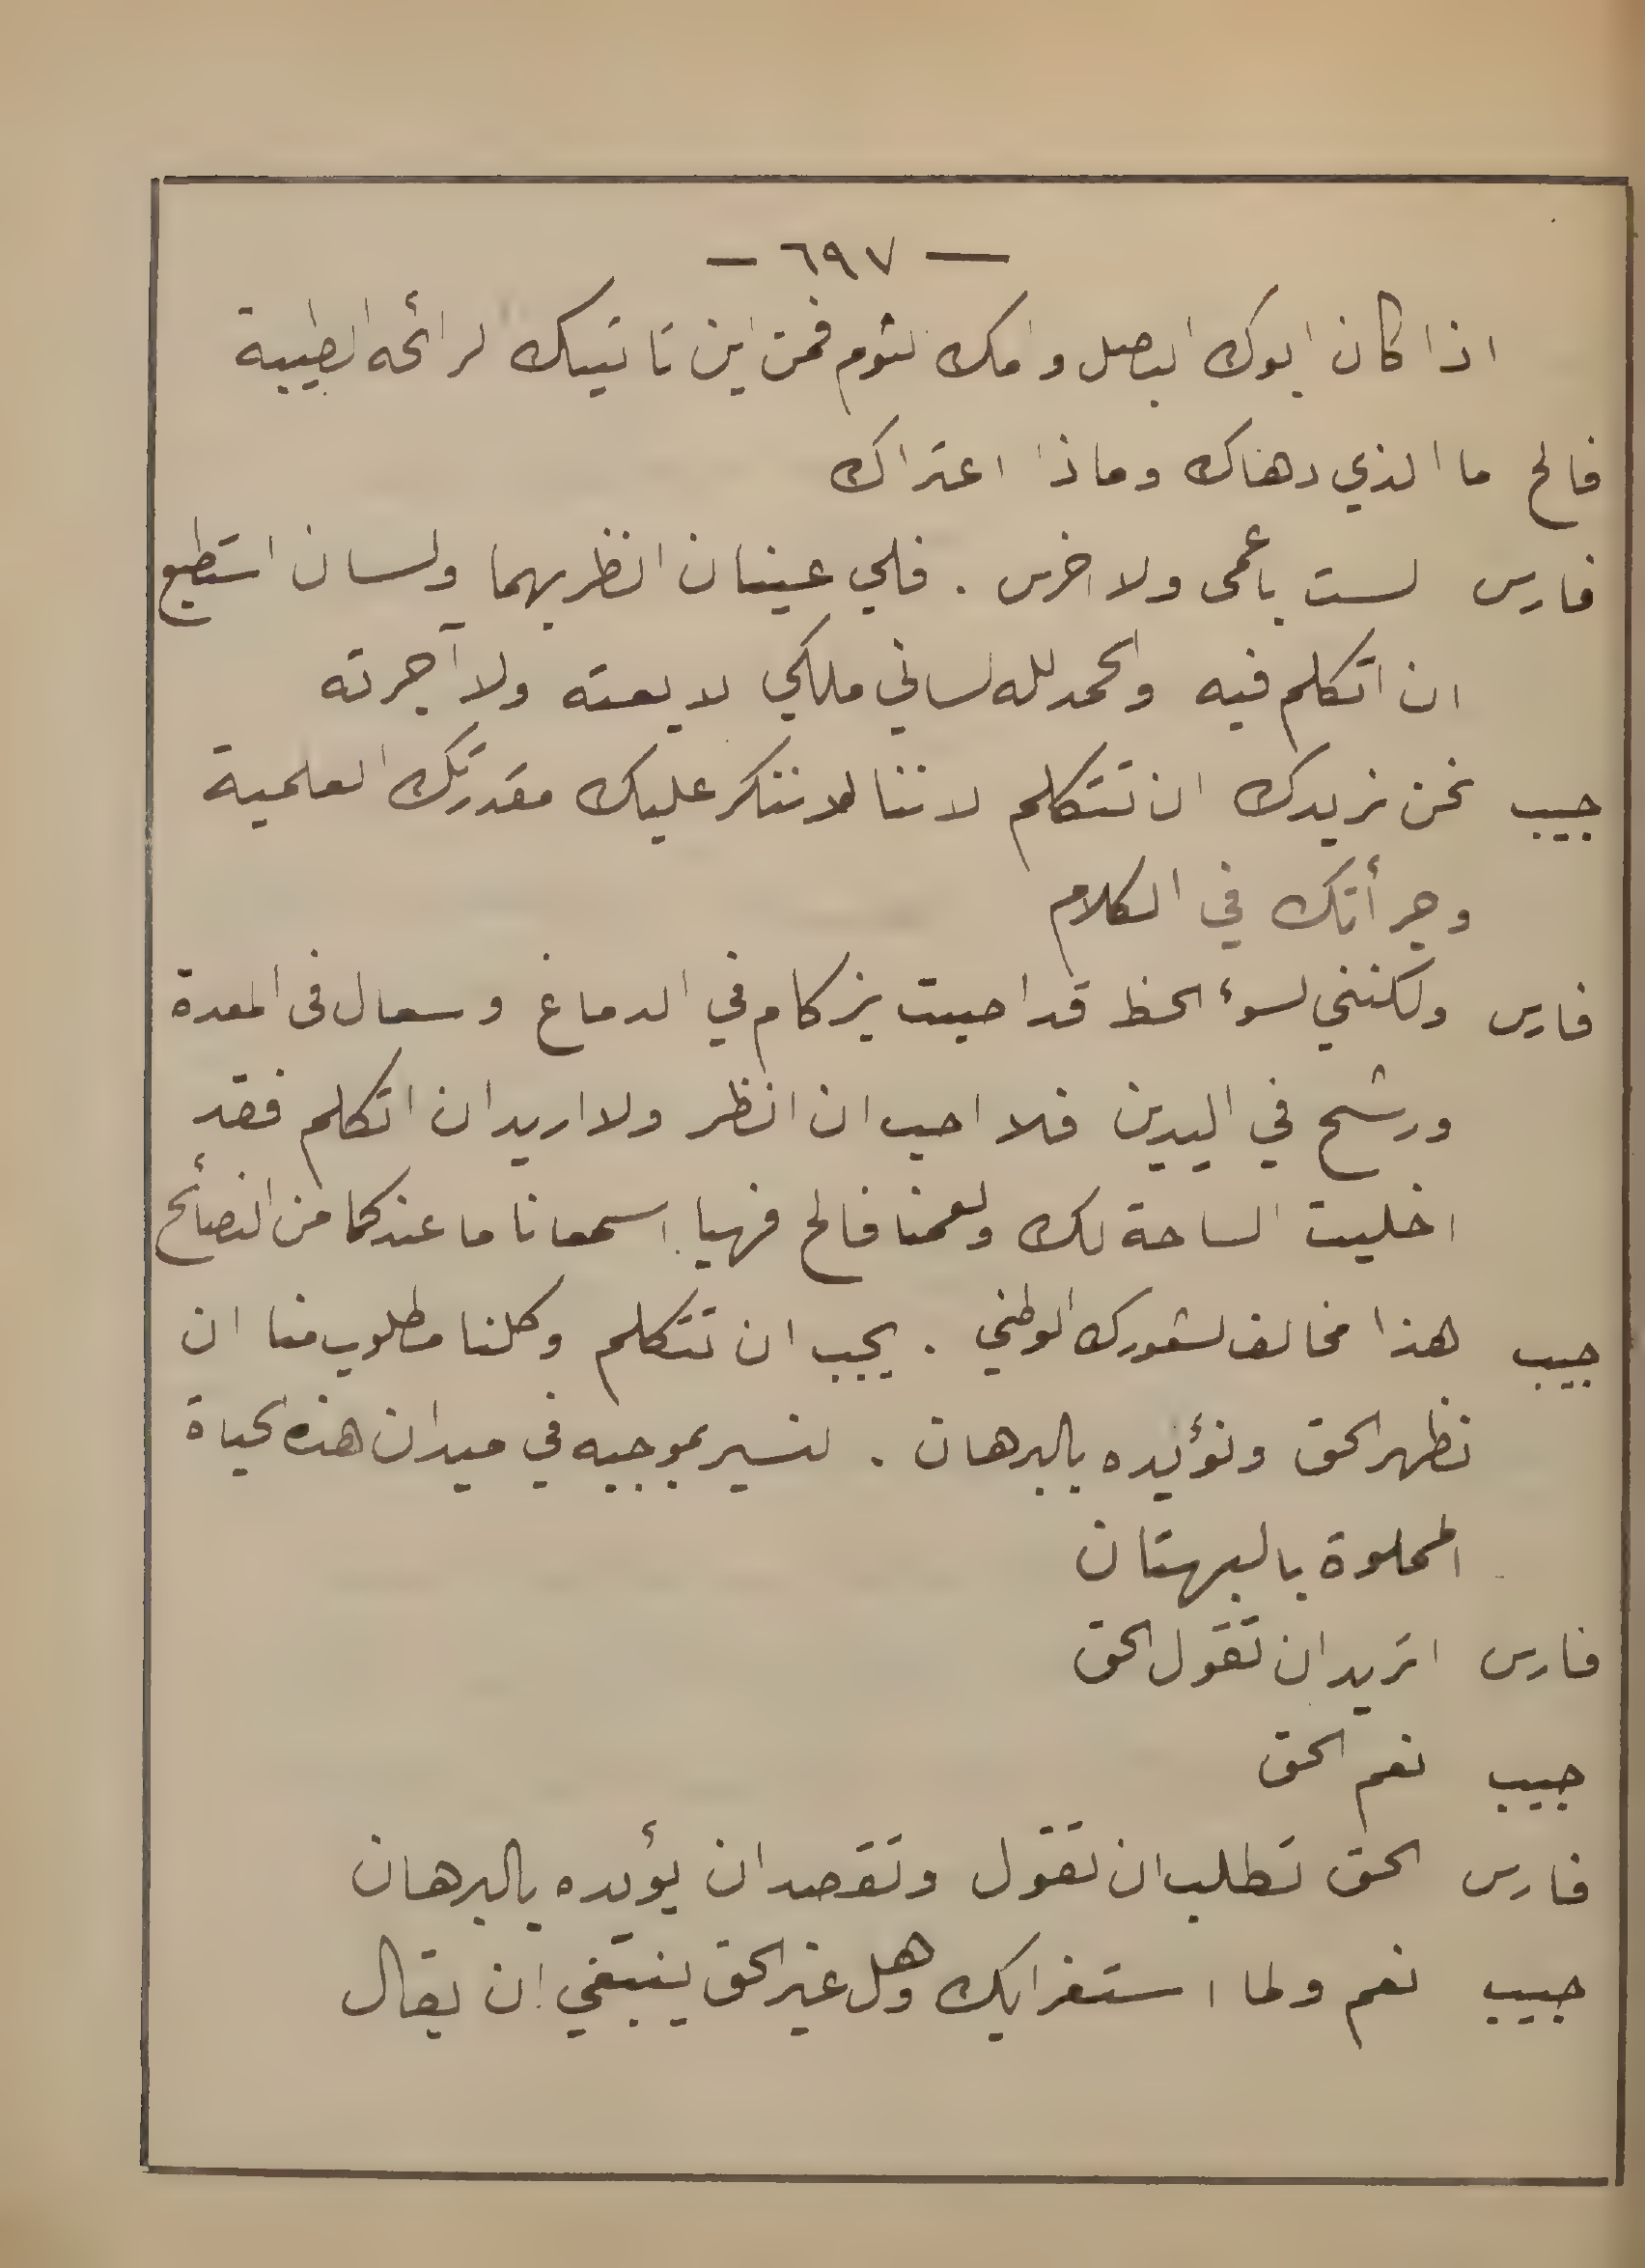 — ٦٩٧ —
اذا كان ابوك البصل وامك الثوم فمن اين تاتيك الرائحه الطيبة
فالح ما الذي دهاك وماذا اعتراك
فارس لست باعمى ولا اخرس . فلي عينان انظر بهما ولسان استطيع
ان اتكلم فيه والحمد لله لساني ملكي لا بعته ولا آجرته
حبيب نحن نريدك ان تتكلم لاننا لا ننكر عليك مقدرتك العلمية
وجرأتك في الكلام
فارس ولكنني لسوء الحظ قد اصبت بزكام في الدماغ وسعال في المعدة
ورشح في اليدين فلا احب ان انظر ولا اريد ان اتكلم فقد
اخليت الساحة لك ولعمنا فالح فهيا اسمعانا ما عندكما من النصائح
حبيب هذا مخالف لشعورك الوطني . يجب ان تتكلم وكلنا مطلوب منا ان
نظهر الحق ونؤيده بالبرهان . لنسير بموجبه في ميدان هذه الحياة
المملوة بالبهتان
فارس اتريد ان تقول الحق
حبيب نعم الحق
فارس الحق تطلب ان تقول وتقصد ان يؤيده بالبرهان
حبيب نعم ولما استغرابك وهل غير الحق ينبغي ان يقال